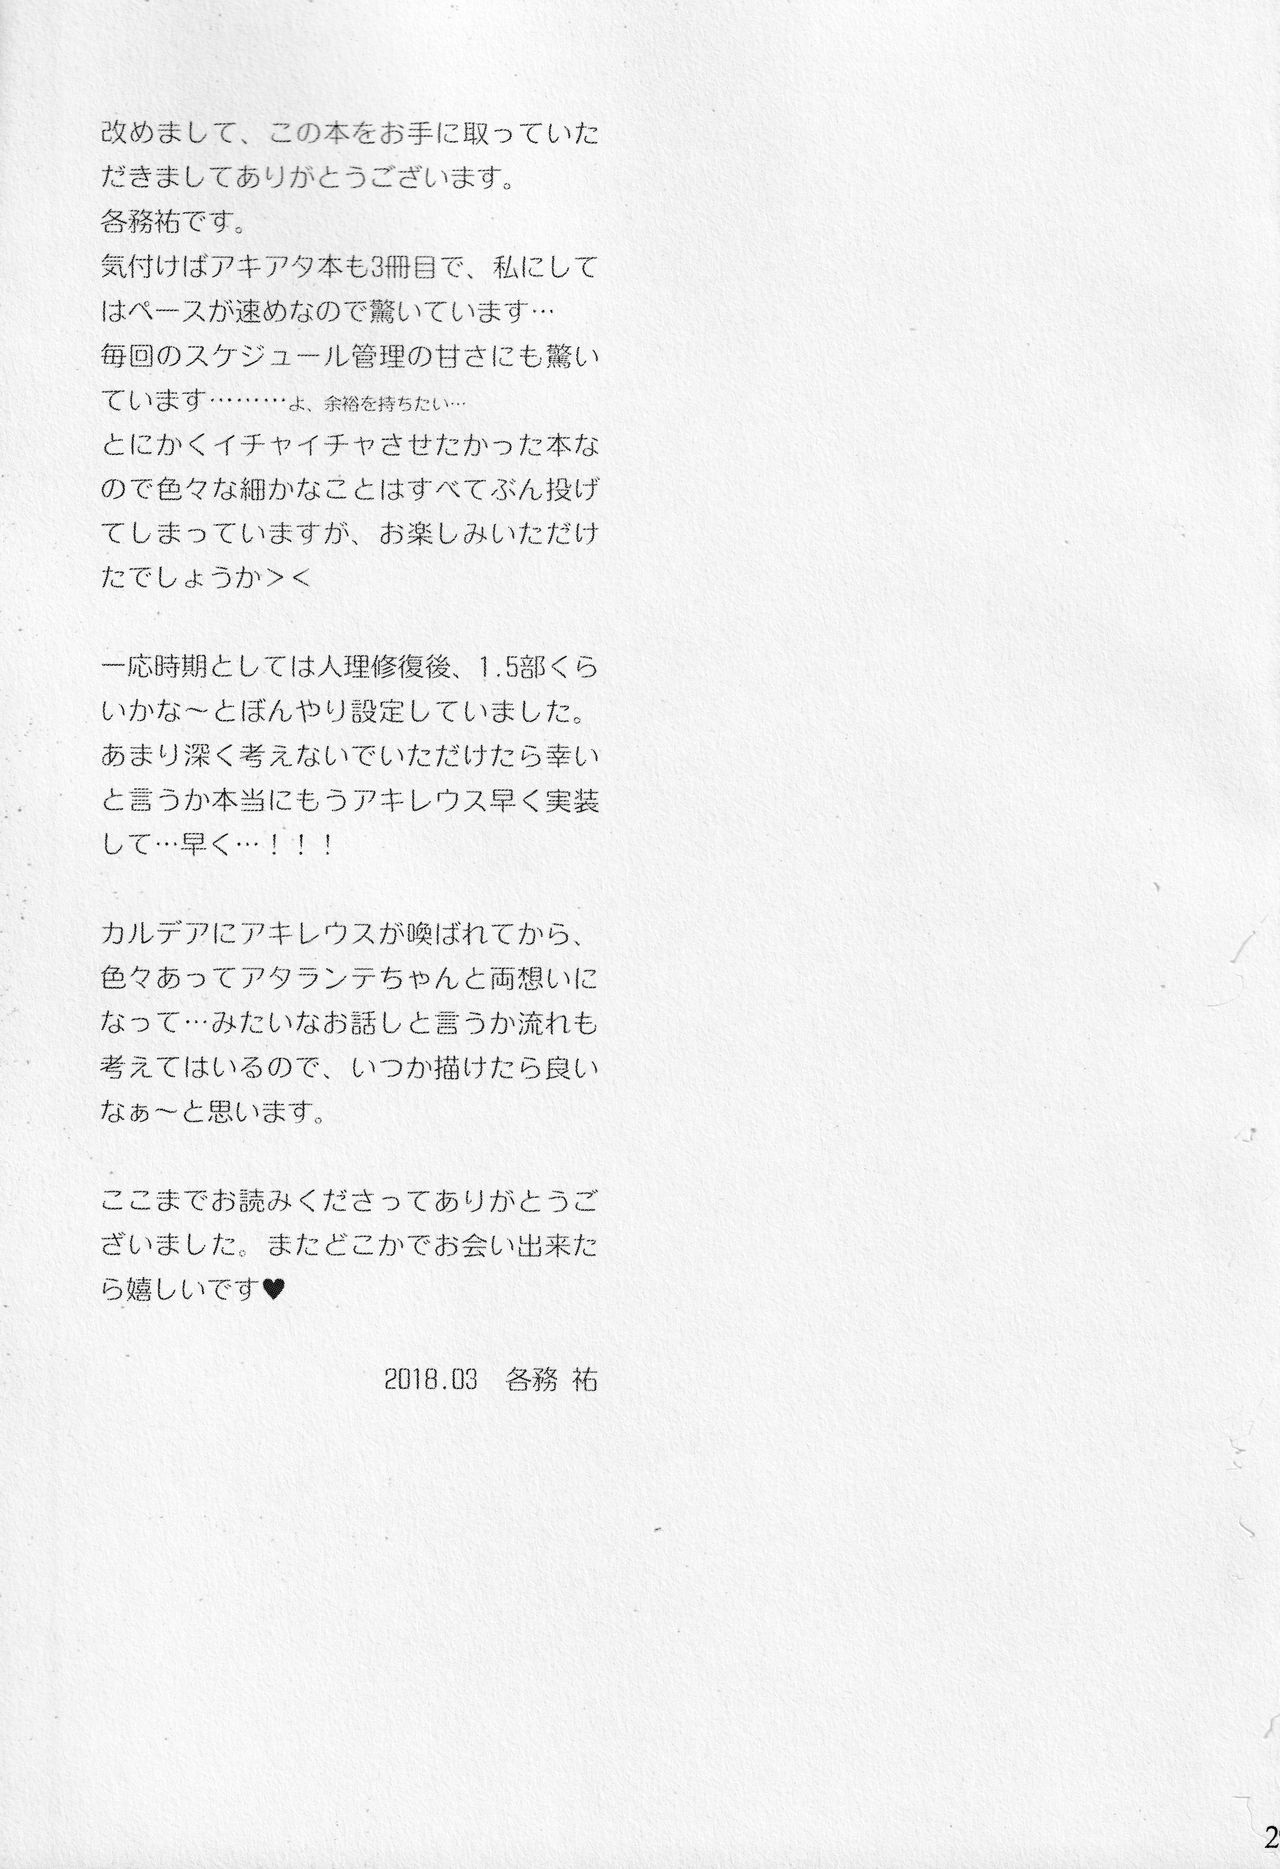 改めまして、この本をお手に取っていた
だきましてありがとうございます。
各務祐です。
気付けばアキアタ本も3冊目で、私にして
はペースが速めなので驚いています…
毎回のスケジュール管理の甘さにも驚い
ています………よ、余裕を持ちたい…
とにかくイチャイチャさせたかった本な
ので色々な細かなことはすべてぶん投げ
てしまっていますが、お楽しみいただけ
たでしょうか＞＜
一応時期としては人理修復後、1.5部くら
いかな～とぼんやり設定していました。
あまり深く考えないでいただけたら幸い
と言うか本当にもうアキレウス早く実装
して…早く…！！！
カルデアにアキレウスが喚ばれてから、
色々あってアタランテちゃんと両想いに
なって…みたいなお話しと言うか流れも
考えてはいるので、いつか描けたら良い
なぁ～と思います。
ここまでお読みくださってありがとうご
ざいました。またどこかでお会い出来た
ら嬉しいです♥
2018.03　各務 祐